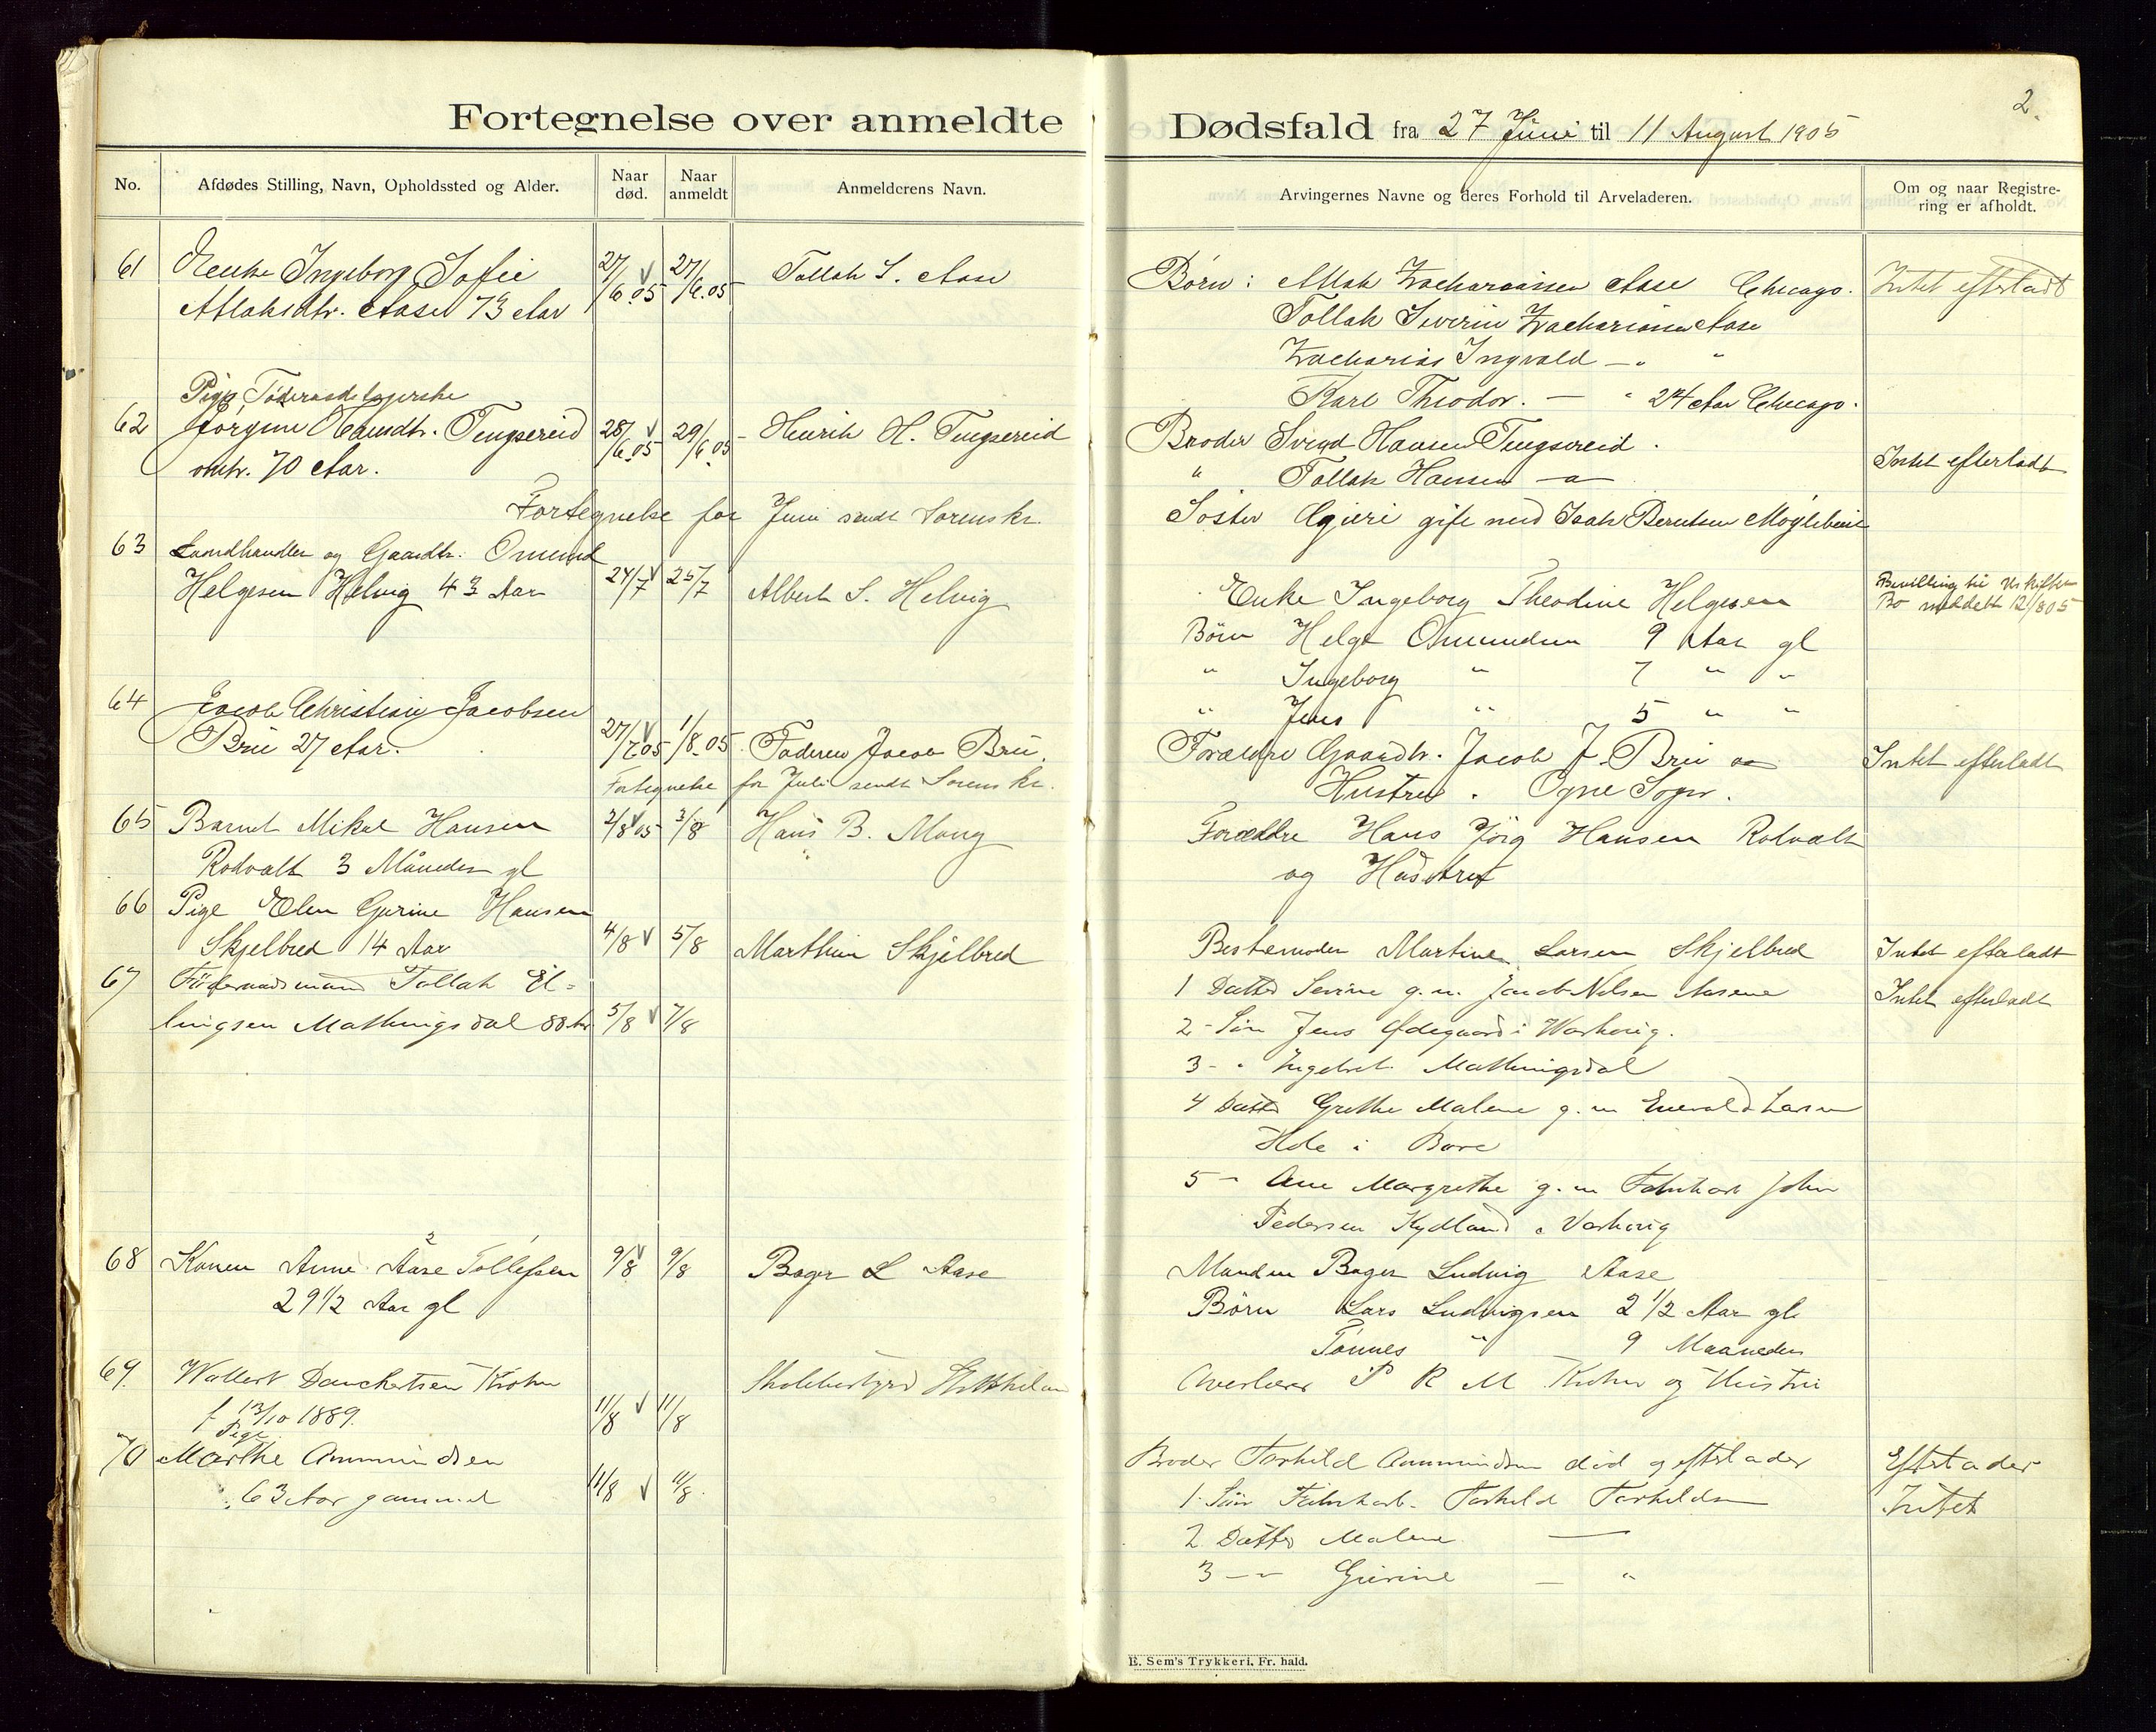 2.
Fortegnelse over anmeldte Dødsfald fra 27 Juni til 11 August 1905
No.
Afdødes Stilling, Navn, Opholdssted og Alder.
Naar død.
Naar anmeldt
Anmelderens Navn.
Arvingernes Navne og deres Forhold til Arveladeren.
Om og naar Registre-
ring er afholdt.
61 Enke Ingeborg Sofie 27/6.05 27/6.05 Tollak S. Aase
Atlaksdtr. Aase 73 Aar
Børn: Atlak Zachariassen Aase Chicago. Intet efterladt
Tollak Severin Zachariassen Aase
Zacharias Ingvald — "
Karl Theodor. — " 24 Aar Chicago.
Pige, Føderaadstagerske
62 Jørgine Hansdtr. Tengsereid 28/6.05 29/6.05 Henrik H. Tengsereid
omtr. 70 Aar.
Broder Svend Hansen Tengsereid.
" Tollak Hansen — Intet efterladt
Søster gift med Isak Berntsen
Fortegnelse for Juni sendt Sorenskr.
63 Landhandler og Gaardbr. Omund 24/7 25/7 Albert S. Helvig
Helgesen Helvig 43 Aar
Enke Ingeborg Theodine Helgesen
Bevilling til Uskiftet
Bo meddelt 12/8 05
Børn Helge Omundsen 9 Aar gl
" Ingeborg " 7 " "
" Jens " 5 " "
64 Jacob Christian Jacobsen
Brue 27 Aar. 27/7.05 1/8.05 Faderen Jacob Brue.
Forældre Gaardbr. Jacob J. Brue og Intet efterladt
Hustru. Ogne Sogn.
Fortegnelse for Juli sendt Sorenskr.
65 Barnet Mikal Hansen 2/8 05 3/8 Hans B. Mong
Rodvalt 3 Måneder gl
Forældre Hans Jörg Hansen Rodvalt
og Hustru
66 Pige Elen Gurine Hansen
Skjelbred 14 Aar 4/8 5/8 Marthine Skjelbred
Bestemoder Martine Larsen Skjelbred Intet efterladt
67 Föderaadsmand Tollak El=
lingsen Mathingsdal 88 Aar 5/8 7/8
1 Datter Sevine g.m. Jacob Nilsen Aasene Intet efterladt
2 - Sön Jens Ødegaard i Varhoug.
3 - " Ingebret Mathingsdal
4 Datter Grethe Malene g.m Enevald Larsen
Hole i Bore
5 - Ane Margrethe g.m Fabrikarb John
Pedersen Kydland i Varhoug
68 Konen Anne Aase Tollefsen 9/8 9/8 Bager L Aase
29 1/2 Aar gl
Manden Bager Ludvig Aase
Børn Lars Ludvigsen 2 1/2 Aar gl.
Tönnes " 9 Maaneder
69. Wollert Danckertsen Krohn 11/8 11/8 Skolebestyrer
f 13/10 1889.
Overlærer P R M Krohn og Hustru
Pige
70 Marthe Ommundsen 11/8 11/8.
63 Aar gammel
Broder Torkild Ommundsen död og efterlader Efterlader
1. Sön Fabrikarb. Torkild Torkildsen Intet
2. Datter Malene —
3 — " Gurine — "
E. Sem's Trykkeri, Fr. hald.